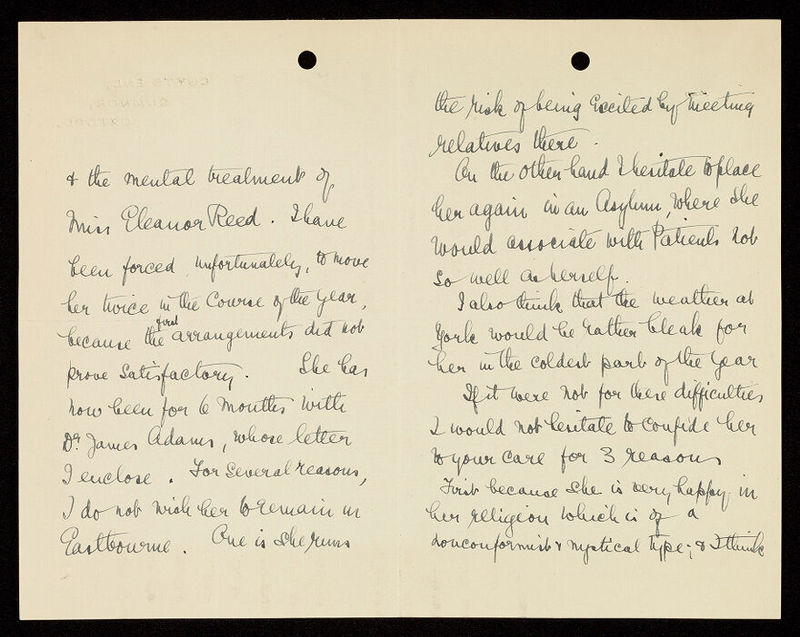 & the mental treatment of
Miss Eleanor Reed. I have
been forced, unfortunately, to move
her twice in the course of the year,
because the first arrangements did not
prove satisfactory. She has
now been for 6 months with
Dr. James Adams, whose letter
I enclose. For several reasons,
I do not wish her to remain in
Eastbourne. One is she runs
the risk of being excited by meeting
relatives there.
On the other hand I hesitate to place
her again in an Asylum, where she
would associate with Patients not
so well as herself.
I also think that the weather at
York would be rather bleak for
her in the coldest part of the year
If it were not for these difficulties
I would not hesitate to confide her
to your care for 3 reasons
First because she is very happy in
her religion which is of a
nonconformist & mystical type; & I think